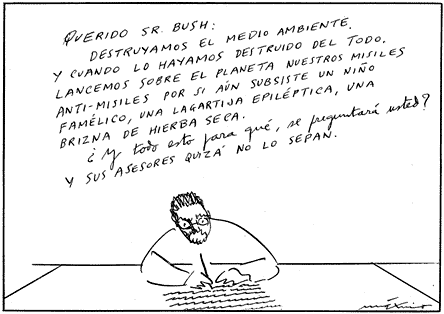 QUERIDO SR. BUSH:
DESTRUYAMOS EL MEDIO AMBIENTE.
Y CUANDO LO HAYAMOS DESTRUIDO DEL TODO.
LANCEMOS SOBRE EL PLANETA NUESTROS MISILES
ANTI-MISILES POR SI AÚN SUBSISTE UN NIÑO
FAMÉLICO, UNA LAGARTIJA EPILÉPTICA, UNA
BRIZNA DE HIERBA SECA.
¿Y todo esto para qué, se preguntará usted?
Y SUS ASESORES QUIZÁ NO LO SEPAN.
máximo